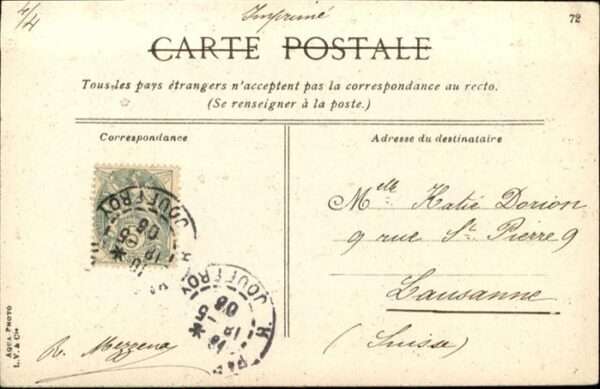 4/4
Imprimé
72
CARTE POSTALE
Tous les pays étrangers n'acceptent pas la correspondance au recto.
(Se renseigner à la poste.)
Correspondance
Adresse du destinataire
JOUFFROY
JOUFFROY
Melle Katie Dorion
9 rue St. Pierre 9
Lausanne
(Suisse)
R. Mezzena
AQUA PHOTO
L.V. & Cie